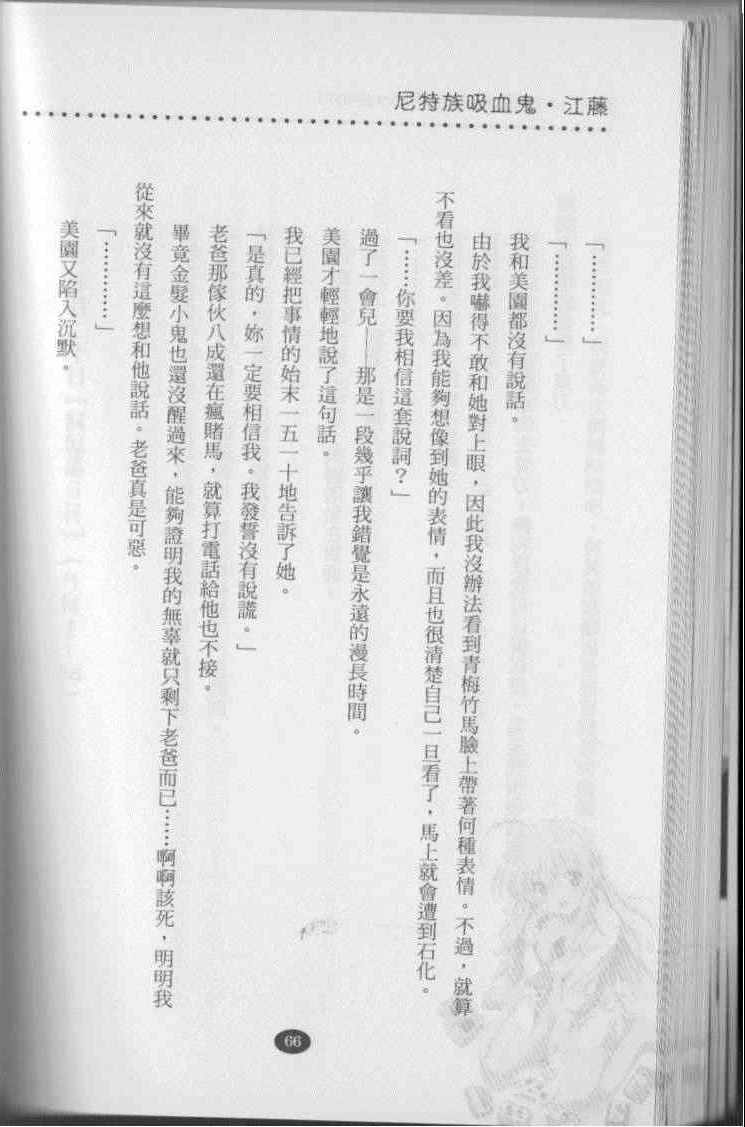 尼特族吸血鬼・江藤
「…………」
「…………」
我和美園都沒有說話。
由於我嚇得不敢和她對上眼，因此我沒辦法看到青梅竹馬臉上帶著何種表情。不過，就算
不看也沒差。因為我能夠想像到她的表情，而且也很清楚自己一旦看了，馬上就會遭到石化。
「……你要我相信這套說詞？」
過了一會兒——那是一段幾乎讓我錯覺是永遠的漫長時間。
美園才輕輕地說了這句話。
我已經把事情的始末一五一十地告訴了她。
「是真的，妳一定要相信我。我發誓沒有說謊。」
老爸那傢伙八成還在瘋賭馬，就算打電話給他也不接。
畢竟金髮小鬼也還沒醒過來，能夠證明我的無辜就只剩下老爸而已……啊啊該死，明明我
從來就沒有這麼想和他說話。老爸真是可惡。
「…………」
美園又陷入沉默。
66